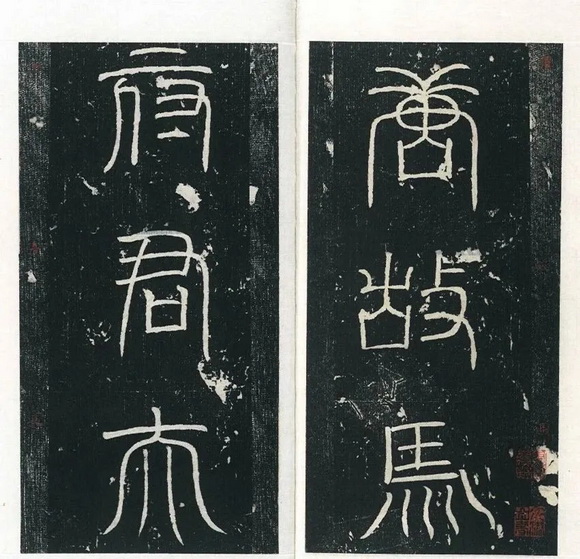 唐故馬
府君夫